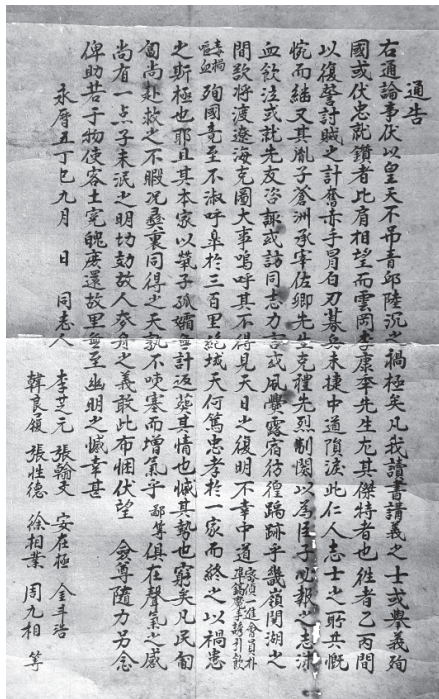 通告
右通諭事伏以皇天不吊青邱陸沉之禍極矣凡我讀書講義之士或興義殉
國或伏忠就鑕者比肩相望而雲岡李康秊先生尤其傑特者也徃者乙丙間
以復讐討賊之計奮赤手冒白刃募兵未捷中道隕淚此仁人志士之所共慨
惋而繼又其胤子滄洲承宰佐卿先生克種先烈制闋以爲臣子必報之志沫
血飮泣或就先友咨諏或訪同志力言或風雪露宿彷徨蹢跡乎畿嶺関湖之
間欵將渡遼海克圖大事嗚呼其不得見天日之復明不幸中道
家偵一進會員朴
毒楇嘔血殉國竟至不淑呼皐於三百里絕域天何篤忠孝於一家而終之以禍患
之斯極也耶且其本家以煢子孤孀無計返葬其情也慽其勢也窮矣凡民匍
匐尚赴救之不暇况彛衷同得之天孰不哽塞而增氣乎鄙等俱在聲氣之感
尚有一点子未泯之明切効故人麥舟之義敢此布悃伏望 僉尊隨力另念
俾助若干物使客土寃魄庶還故里無至幽明之憾幸甚
永曆五丁巳九月 日 同志人
李芝元 張翰文 安在極 金斗浩
韓良履 張性德 徐相業 周九相 等